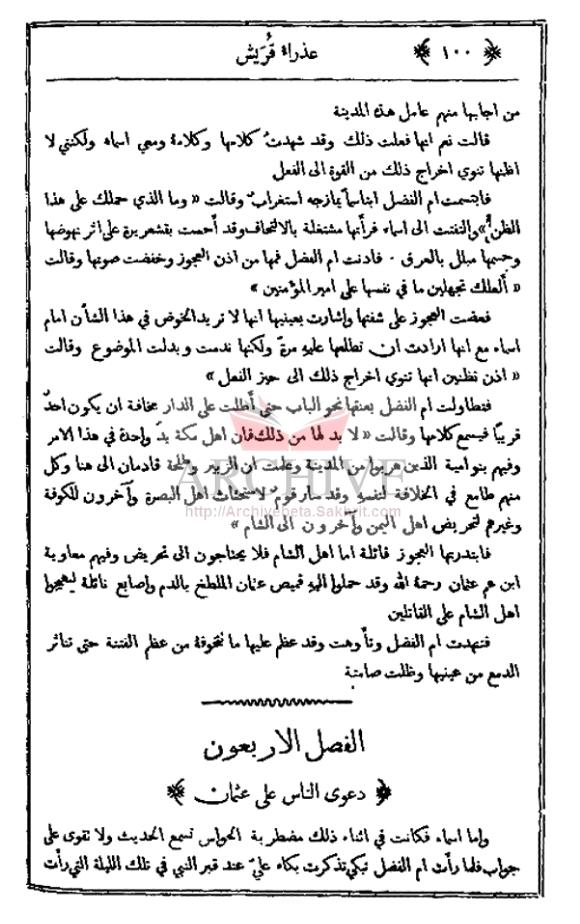 ﴿ ١٠٠ ﴾ عذراء قُرَيش
من اجابها منهم عامل هذه المدينة
قالت نعم انها فعلت ذلك وقد شهدتُ كلامها وكلامهُ ومعي اسماء ولكنني لا
اظنها تنوي اخراج ذلك من القوة الى الفعل
فابتسمت ام الفضل ابتساماً يمازجه استغراب وقالت « وما الذي حملك على هذا
الظن » والتفتت الى اسماء فرأتها مشتغلة بالالتحاف وقد أحست بقشعريرة على اثر نهوضها
وجسمها مبلل بالعرق ٠ فادنت ام الفضل فمها من اذن العجوز وخفضت صوتها وقالت
« ألعلك تجهلين ما في نفسها على امير المؤمنين »
فعضت العجوز على شفتها وإشارت بعينيها انها لا تريد الخوض في هذا الشأن امام
اسماء مع انها ارادت ان تطلعها عليهِ مرةً ولكنها ندمت وبدلت الموضوع وقالت
« اذن تظنين انها تنوي اخراج ذلك الى حيز الفعل »
فتطاولت ام الفضل بعنقها نحو الباب حتى أطلت على الدار مخافة ان يكون احدٌ
قريبًا فيسمع كلامها وقالت « لا بد لها من ذلك فان اهل مكة يدٌ واحدة في هذا الامر
وفيهم بنو امية الذين هربوا من المدينة وعلمت ان الزبير وطلحة قادمان الى هنا وكل
منهم طامع في الخلافة لنفسهِ وقد سار قوم لاستحثاث اهل البصرة وآخرون للكوفة
وغيرهم لتحريض اهل اليمن وآخرون الى الشام »
فابتدرتها العجوز قائلة اما اهل الشام فلا يحتاجون الى تحريض وفيهم معاوية
ابن عم عثمان رحمهُ الله وقد حملوا اليهِ قميص عثمان الملطخ بالدم وإصابع نائلة ليهيجوا
اهل الشام على القاتلين
فتنهدت ام الفضل وتأوهت وقد عظم عليها ما تتخوفهُ من عظم الفتنة حتى تناثر
الدمع من عينيها وظلت صامتة
الفصل الاربعون
﴿ دعوى الناس على عثمان ﴾
وإما اسماء فكانت في اثناء ذلك مضطربة الحواس تسمع الحديث ولا تقوى على
جواب فلما رأت ام الفضل تبكي تذكرت بكاء عليّ عند قبر النبي في تلك الليلة التي رأت
ARCHIVE
http://Archivebeta.Sakhrit.com